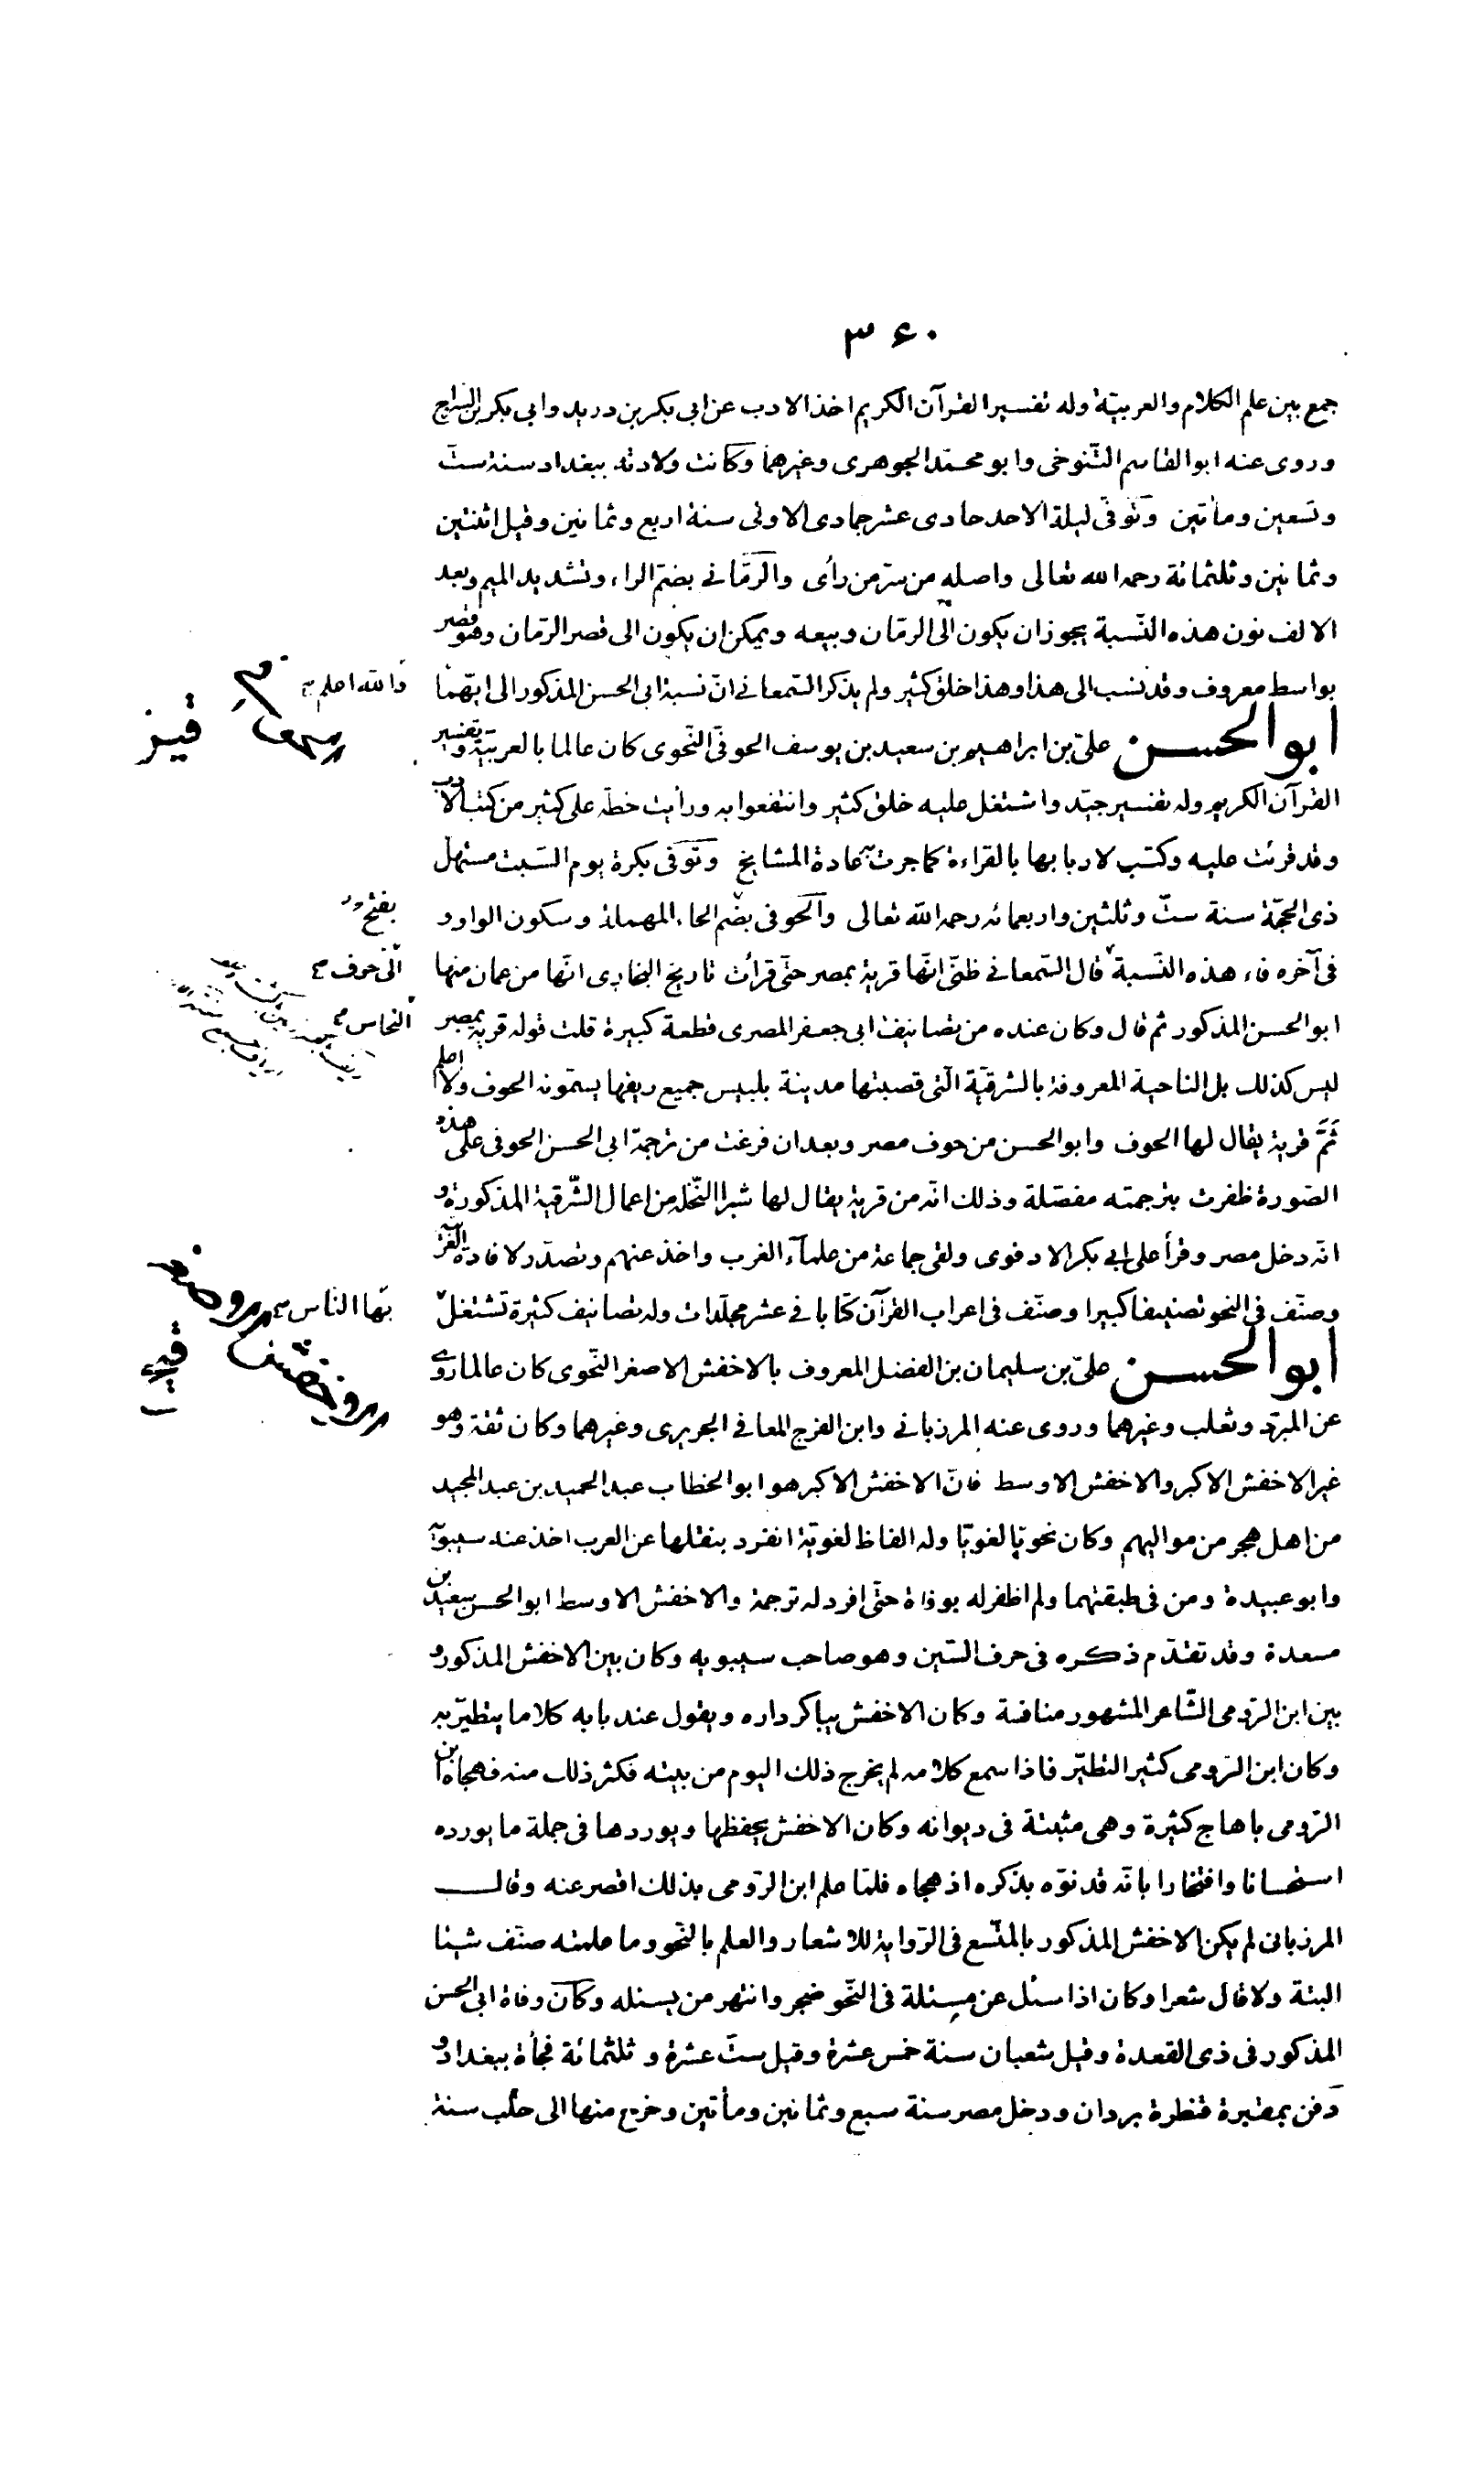 ٣٤٠
جمع بين علم الكلام والعربيّة وله تفسير القرآن الكريم اخذ الادب عن ابى بكر بن دريد وابى بكر بن السّراج
وروى عنه ابو القاسم التّنوخى وابو محمّد الجوهرى وغيرهما وكانت ولادته ببغداد سنة ستّ
وتسعين ومأتين وتوفّى ليلة الاحد حادى عشر جمادى الاولى سنة اربع وثمانين وقيل اثنتين
وثمانين وثلثمائة رحمه الله تعالى واصله من سرّ من رأى والرّمّانى بضمّ الراء وتشديد الميم وبعد
الالف نون هذه النّسبة يجوز ان يكون الى الرمّان وبيعه ويمكن ان يكون الى قصر الرمّان وهو قصر
بواسط معروف وقد نسب الى هذا وهذا خلق كثير ولم يذكر السّمعانى انّ نسبة ابى الحسن المذكور الى ايّهما
والله اعلم
ابو الحسن علىّ بن ابراهيم بن سعيد بن يوسف الحوفىّ النّحوى كان عالما بالعربيّة وتفسير
القرآن الكريم وله تفسير جيّد واشتغل عليه خلق كثير وانتفعوا به ورأيت خطّه على كثير من كتب الادب
وقد قرئت عليه وكتب لاربابها بالقراءة كما جرت عادة المشايخ وتوفّى بكرة يوم السّبت مستهلّ
ذى الحجّة سنة ستّ وثلثين واربعمائه رحمه الله تعالى والحوفى بضم الحاء المهملة وسكون الواو و
بفتح
فى آخره فاء هذه النّسبة قال السّمعانى ظنّى انّها قرية بمصر حتّى قرأت تاريخ البخارى انّها من عمان منها
الى حوف
ابو الحسن المذكور ثم قال وكان عنده من تصانيف ابى جعفر المصرى قطعة كبيرة قلت قوله قرية بمصر
النحاس
ليس كذلك بل الناحية المعروفة بالشرقيّة الّتى قصبتها مدينة بلبيس جميع ريفها يسمّونه الحوف ولا اعلم
ثَمَّ قرية يقال لها الحوف وابو الحسن من حوف مصر وبعد ان فرغت من ترجمة ابى الحسن الحوفى على هذه
الصّورة ظفرت بترجمته مفصّلة وذلك انّه من قرية يقال لها شبرا النّخله من اعمال الشّرقية المذكورة و
انّه دخل مصر وقرأ على ابى بكر الادفوى ولقى جماعة من علمآء الغرب واخذ عنهم وتصدّر لافادة العربيّة
وصنّف فى النحو تصنيفا كبيرا وصنّف فى اعراب القرآن كتابا فى عشر مجلّدات وله تصانيف كثيرة تشتغل
بها الناس
ابو الحسن علىّ بن سليمان بن الفضل المعروف بالاخفش الاصغر النّحوى كان عالما روى
عن المبرّد وثعلب وغيرهما وروى عنه المرزبانى وابن الفرج المعافى الجريرى وغيرهما وكان ثقة وهو
غير الاخفش الاكبر والاخفش الاوسط فانّ الاخفش الاكبر هو ابو الخطاب عبد الحميد بن عبد المجيد
من اهل هجر من مواليهم وكان نحويّا لغويّا وله الفاظ لغويّة انفرد بنقلها عن العرب اخذ عنه سيبويه
وابو عبيدة ومن فى طبقتهما ولم اظفر له بوفاة حتّى افرد له ترجمة والاخفش الاوسط ابو الحسن سعيد بن
مسعدة وقد تقدّم ذكره فى حرف السّين وهو صاحب سيبويه وكان بين الاخفش المذكور و
بين ابن الرّومى الشّاعر المشهور منافسة وكان الاخفش يباكر داره ويقول عند بابه كلاما يتطيّر به
وكان ابن الرّومى كثير التطيّر فاذا سمع كلامه لم يخرج ذلك اليوم من بيته فكثر ذلك منه فهجاه ابن
الرّومى باهاج كثيرة وهى مثبتة فى ديوانه وكان الاخفش يحفظها ويوردها فى جملة ما يورده
استحسانا وافتخارا بانّه قد نوّه بذكره اذ هجاه فلمّا علم ابن الرّومى بذلك اقصر عنه وقال
المرزبانى لم يكن الاخفش المذكور بالمتّسع فى الرّواية للاشعار والعلم بالنّحو وما علمته صنّف شيئا
البتة ولا قال شعرا وكان اذا سئل عن مسئلة فى النّحو ضجر وانتهر من يسئله وكان وفاة ابى الحسن
المذكور فى ذى القعدة وقيل شعبان سنة خمس عشرة وقيل ستّ عشرة وثلثمائة فجأة ببغداد و
دفن بمقبرة قنطرة بردان ودخل مصر سنة سبع وثمانين ومأتين وخرج منها الى حلب سنة